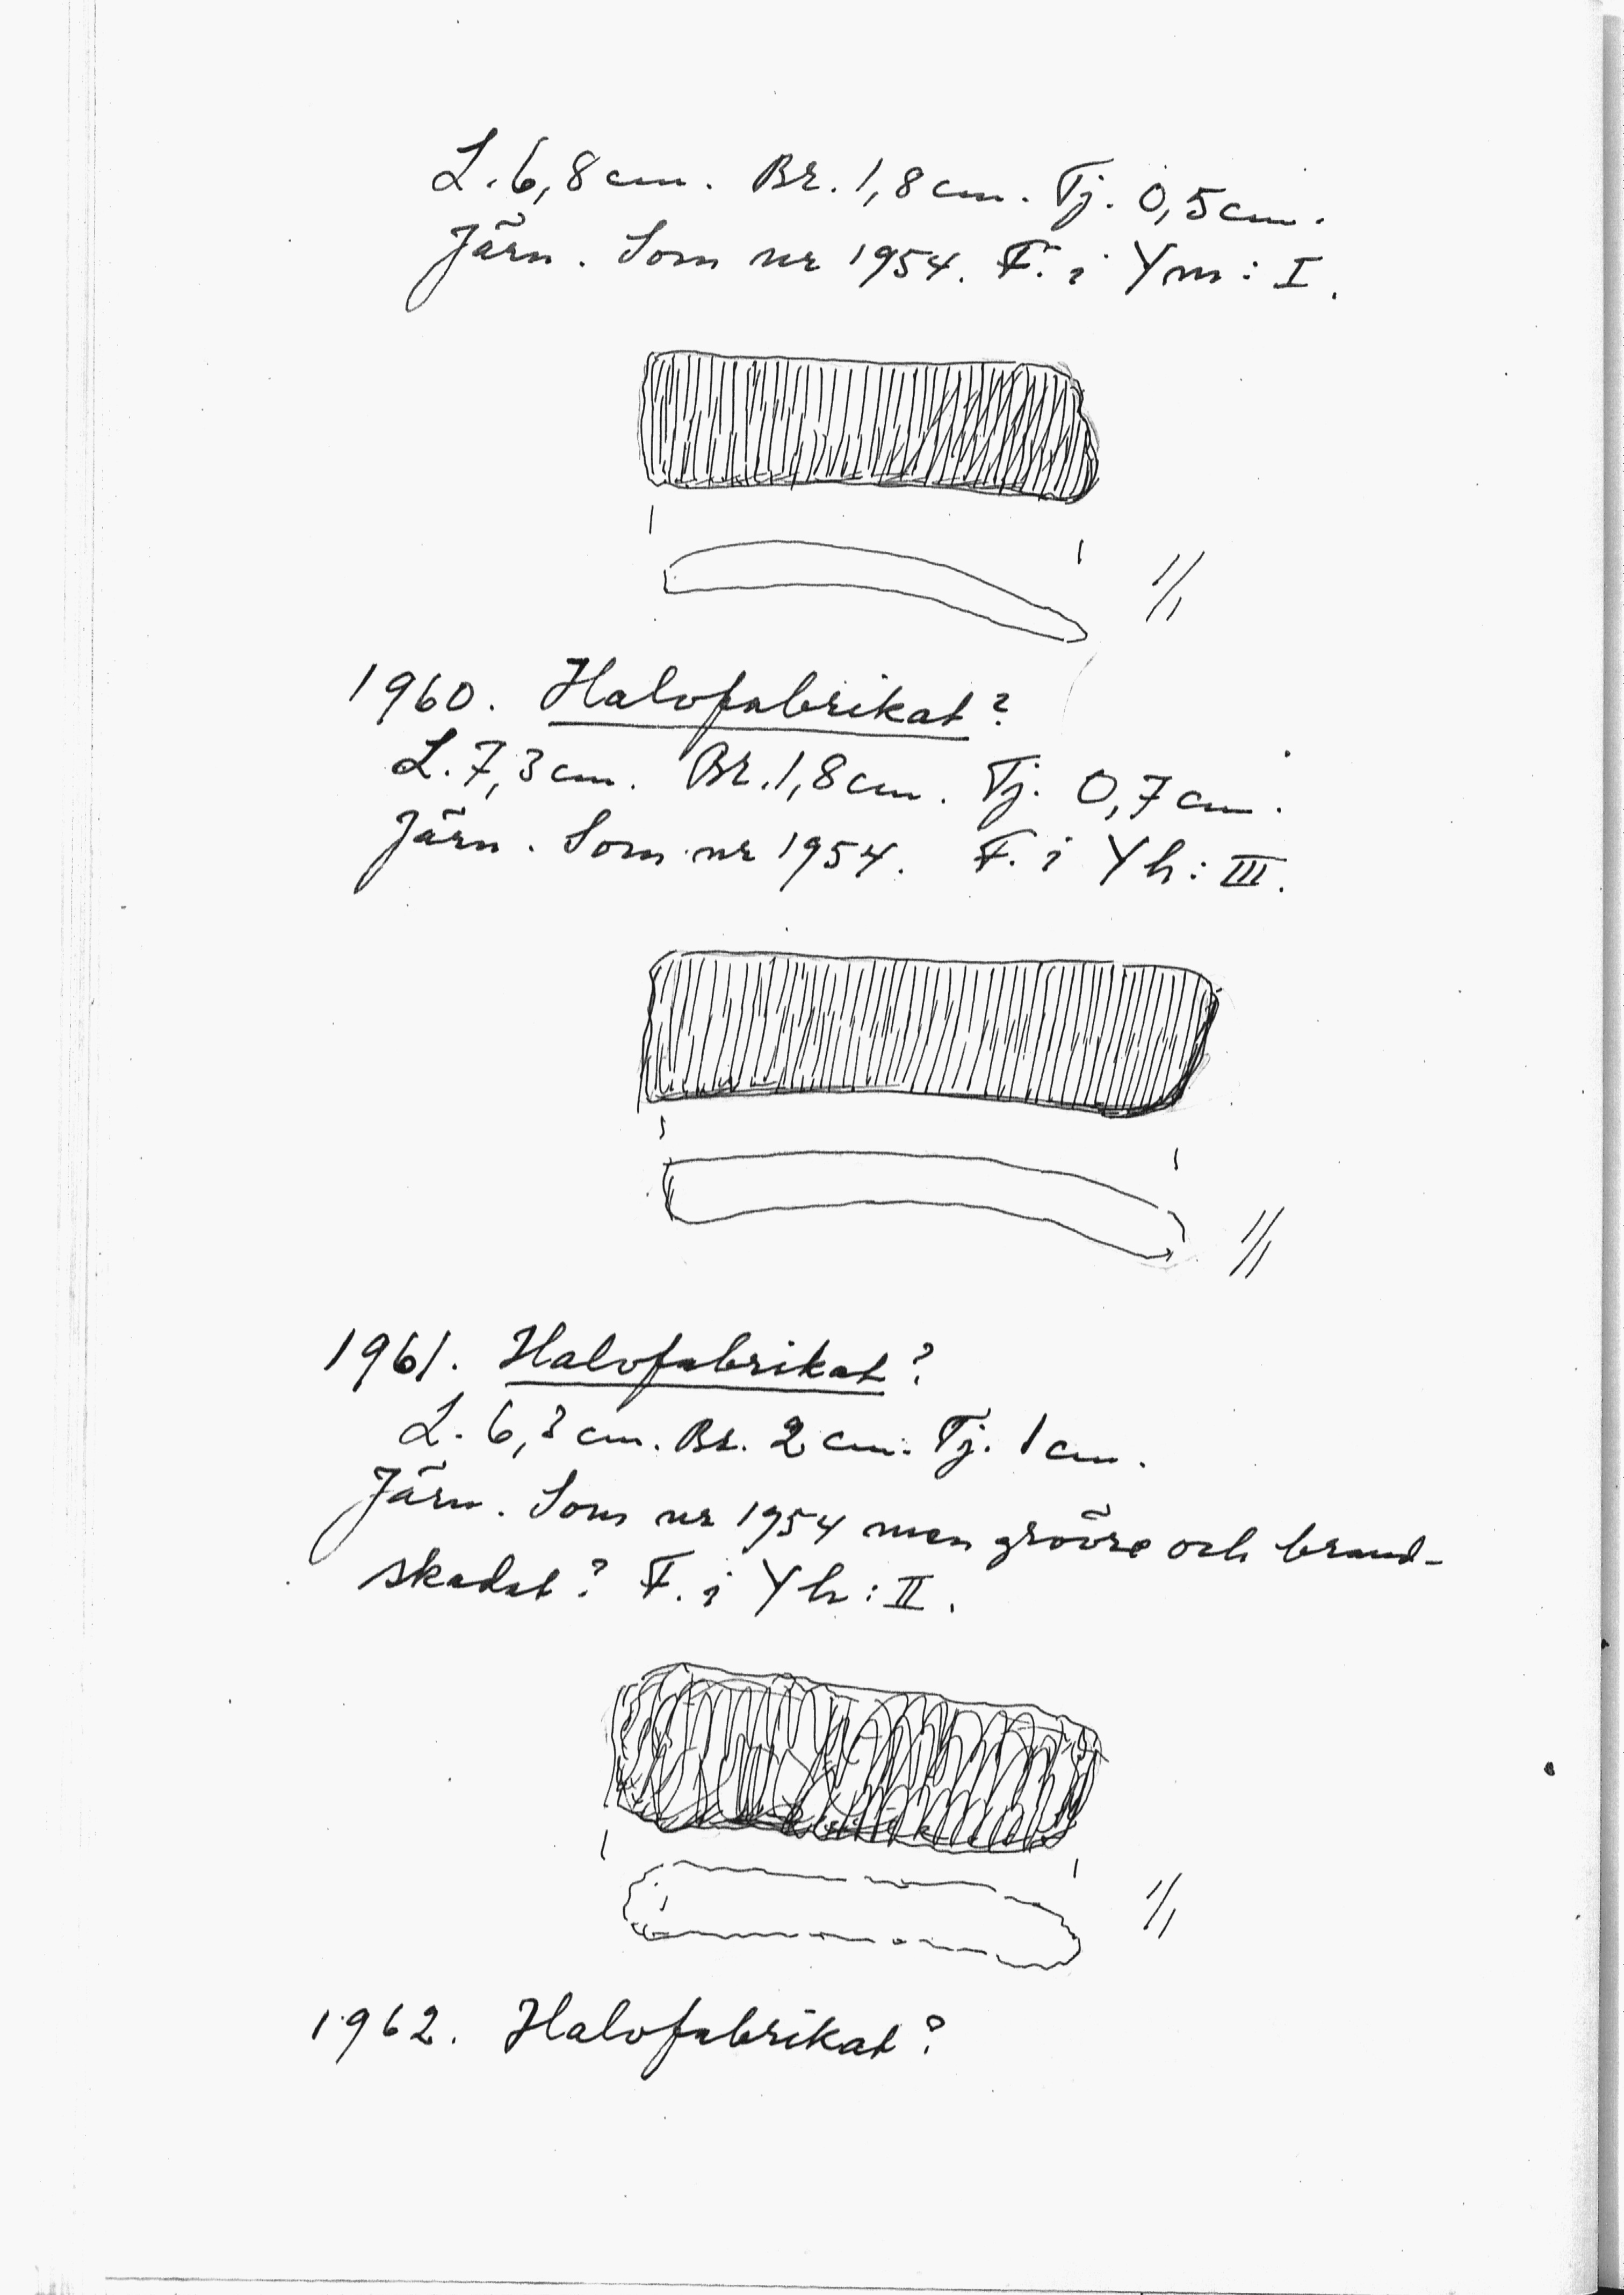 L. 6,8 cm. Br. 1,8 cm. Tj. 0,5 cm.
Järn. Som nr 1954. F. i Ym: I.
1/1
1960. Halvfabrikat?
L. 7,3 cm. Br. 1,8 cm. Tj. 0,7 cm.
Järn. Som nr 1954. F. i Yh: III.
1/1
1961. Halvfabrikat?
L. 6,3 cm. Br. 2 cm. Tj. 1 cm.
Järn. Som nr 1954 men grövre och brand-
skadat? F. i Yh: II.
1/1
1962. Halvfabrikat?